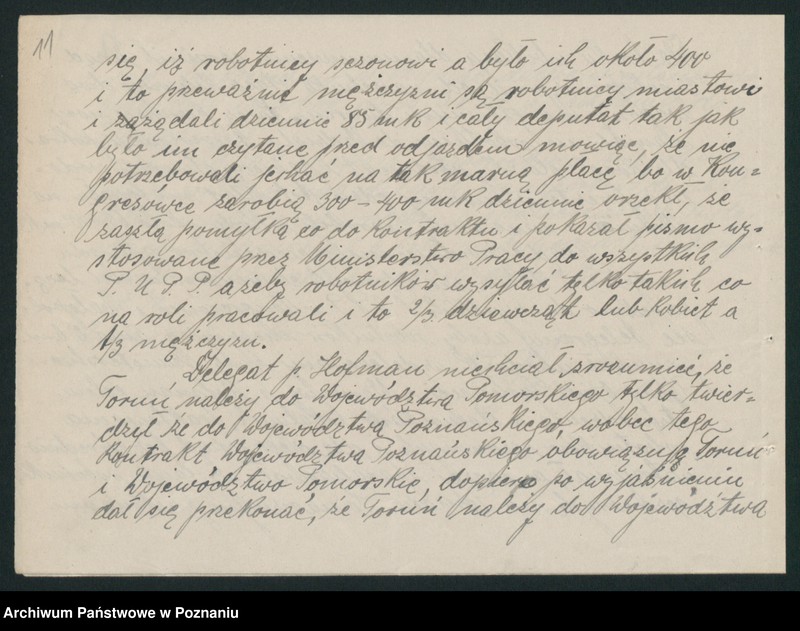 11
się, iż robotnicy sezonowi a było ich około 400
i to przeważnie mężczyzni są robotnicy miastowi
i zażądali dziennie 85 mk i cały deputat tak jak
było im czytane przed odjazdem mowiąc, że nie
potrzebowali jechać na tak marną płacę, bo w Kon=
gresówce zarobią 300 – 400 mk dziennie orzekł, że
zaszłą pomyłką co do kontraktu i pokazał pismo wy=
stosowane przez Ministerstwo Pracy do wszystkich
P. U P. P. ażeby robotników wysyłać tylko takich co
na roli pracowali i to 2/3 dziewcząt lub kobiet a
1/3 mężczyzn.
Delegat p. Hofman niechciał zrozumieć, że
Toruń należy do Województwa Pomorskiego tylko twier=
dził że do Województwa Poznańskiego, wobec tego
Kontrakt Województwa Poznańskiego obowiązują Toruń
i Województwo Pomorskie, dopiero po wyjaśnieniu
dał się przekonać, że Toruń należy do Województwa
Archiwum Państwowe w Poznaniu